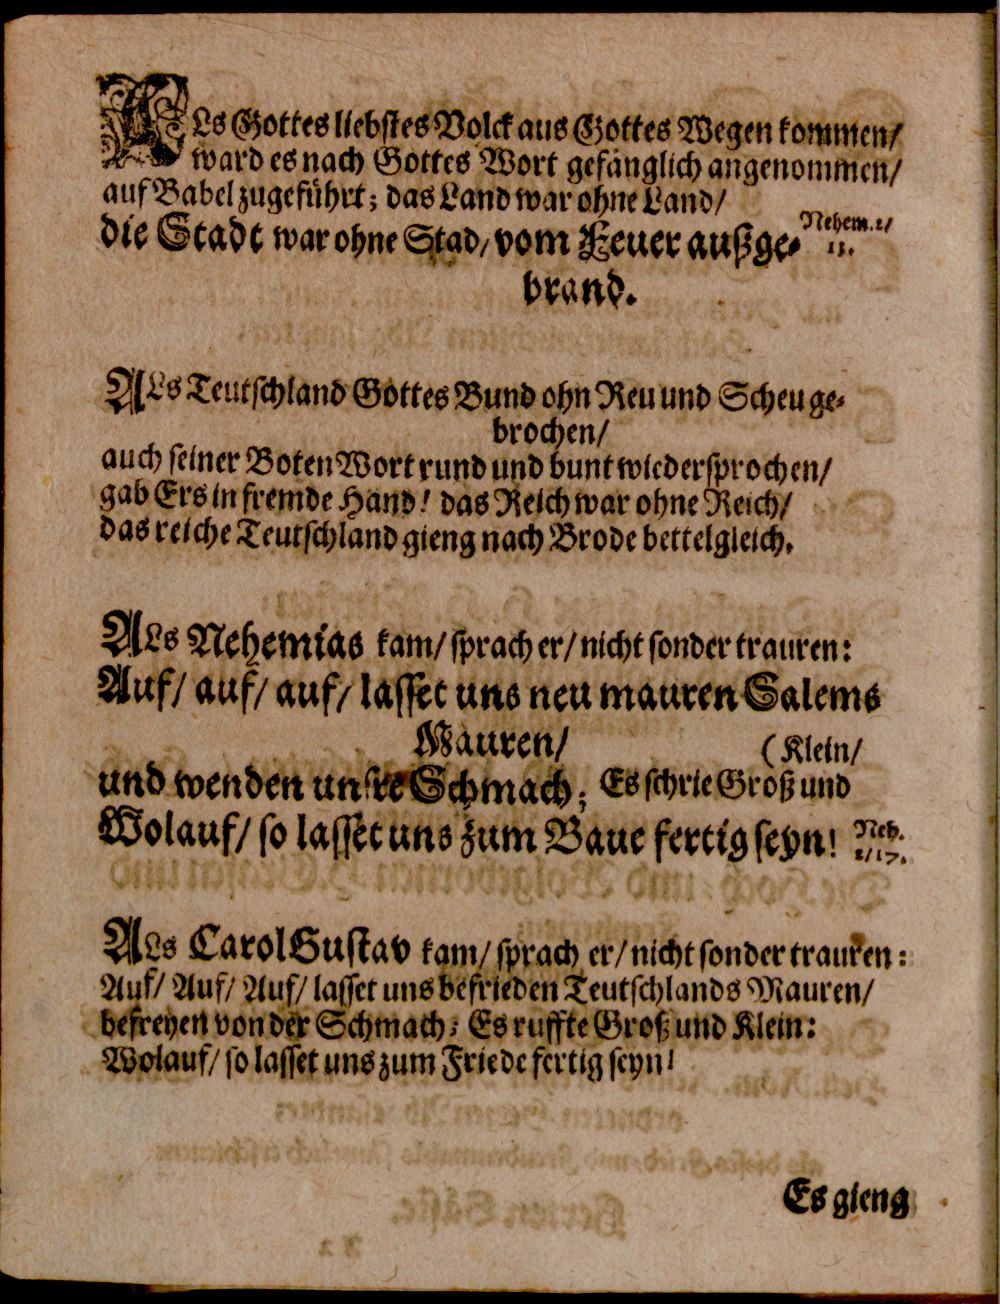 ALs Gottes liebstes Volck aus Gottes Wegen kommen/
ward es nach Gottes Wort gefänglich angenommen/
auf Babel zugeführt; das Land war ohne Land/
die Stadt war ohne Stad/ vom Feuer außge-
Nehem. 1/
11.
brand.
ALs Teutschland Gottes Bund ohn Reu und Scheu ge-
brochen/
auch seiner Boten Wort rund und bunt wiedersprochen/
gab Ers in fremde Hand! das Reich war ohne Reich/
das reiche Teutschland gieng nach Brode bettelgleich.
ALs Nehemias kam/ sprach er/ nicht sonder trauren:
Auf/ auf/ auf/ lasset uns neu mauren Salems
Mauren/
(Klein/
und wenden unsre Schmach; Es schrie Groß und
Wolauf/ so lasset uns zum Baue fertig seyn!
Neh.
2/17.
ALs Carol Gustav kam/ sprach er/ nicht sonder trauren:
Auf/ Auf/ Auf/ lasset uns befrieden Teutschlands Mauren/
befreyen von der Schmach; Es ruffte Groß und Klein:
Wolauf/ so lasset uns zum Friede fertig seyn!
Es gieng